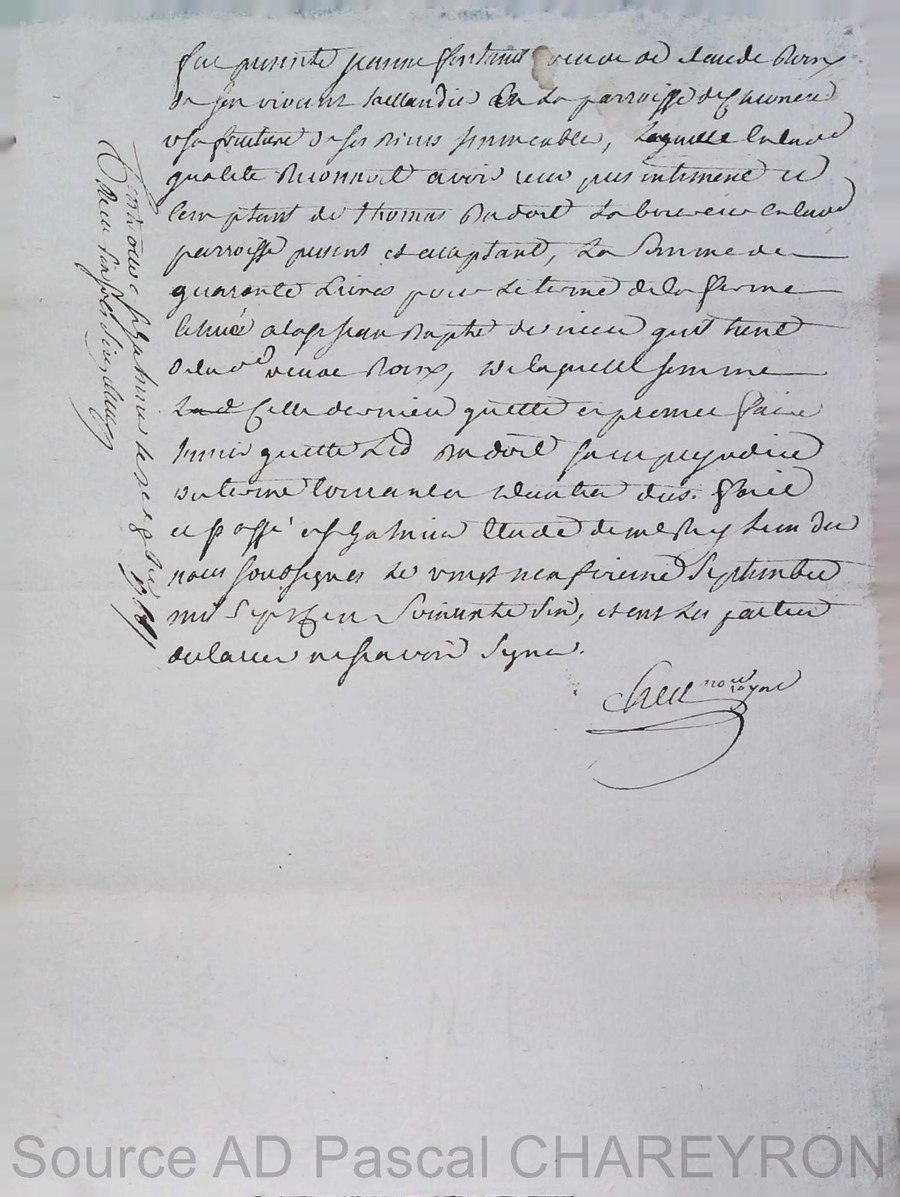 fut presente jeanne fontana veuve de claude Roux
de son vivant taillandier en la parroisse de
usufruiture de ses biens immeuble, laquelle en lad
qualité Reconnoit avoir reçu presentement et
comptant de thomas Badoil Laboureur en lad
parroisse present et acceptant, La somme de
quarante Livres pour le terme de la ferme
echue a la st jean Baptiste dernier quil tient
de lad veuve Roux, de laquelle somme
Lad Celle derniere quitte et promet faire
tenir quitte Led Badoil sans prejudice
du terme courant et dautre dus. fait
et passé a st galmier etude de me
nous soussignes Le vingt neuf vieme septembre
mil sept cen soixante six, et ont les parties
declarer ne scavoir signer.
nore royal
Controle a st galmier le 7bre 1766
Reçu six sols six deniers
Source AD Pascal CHAREYRON